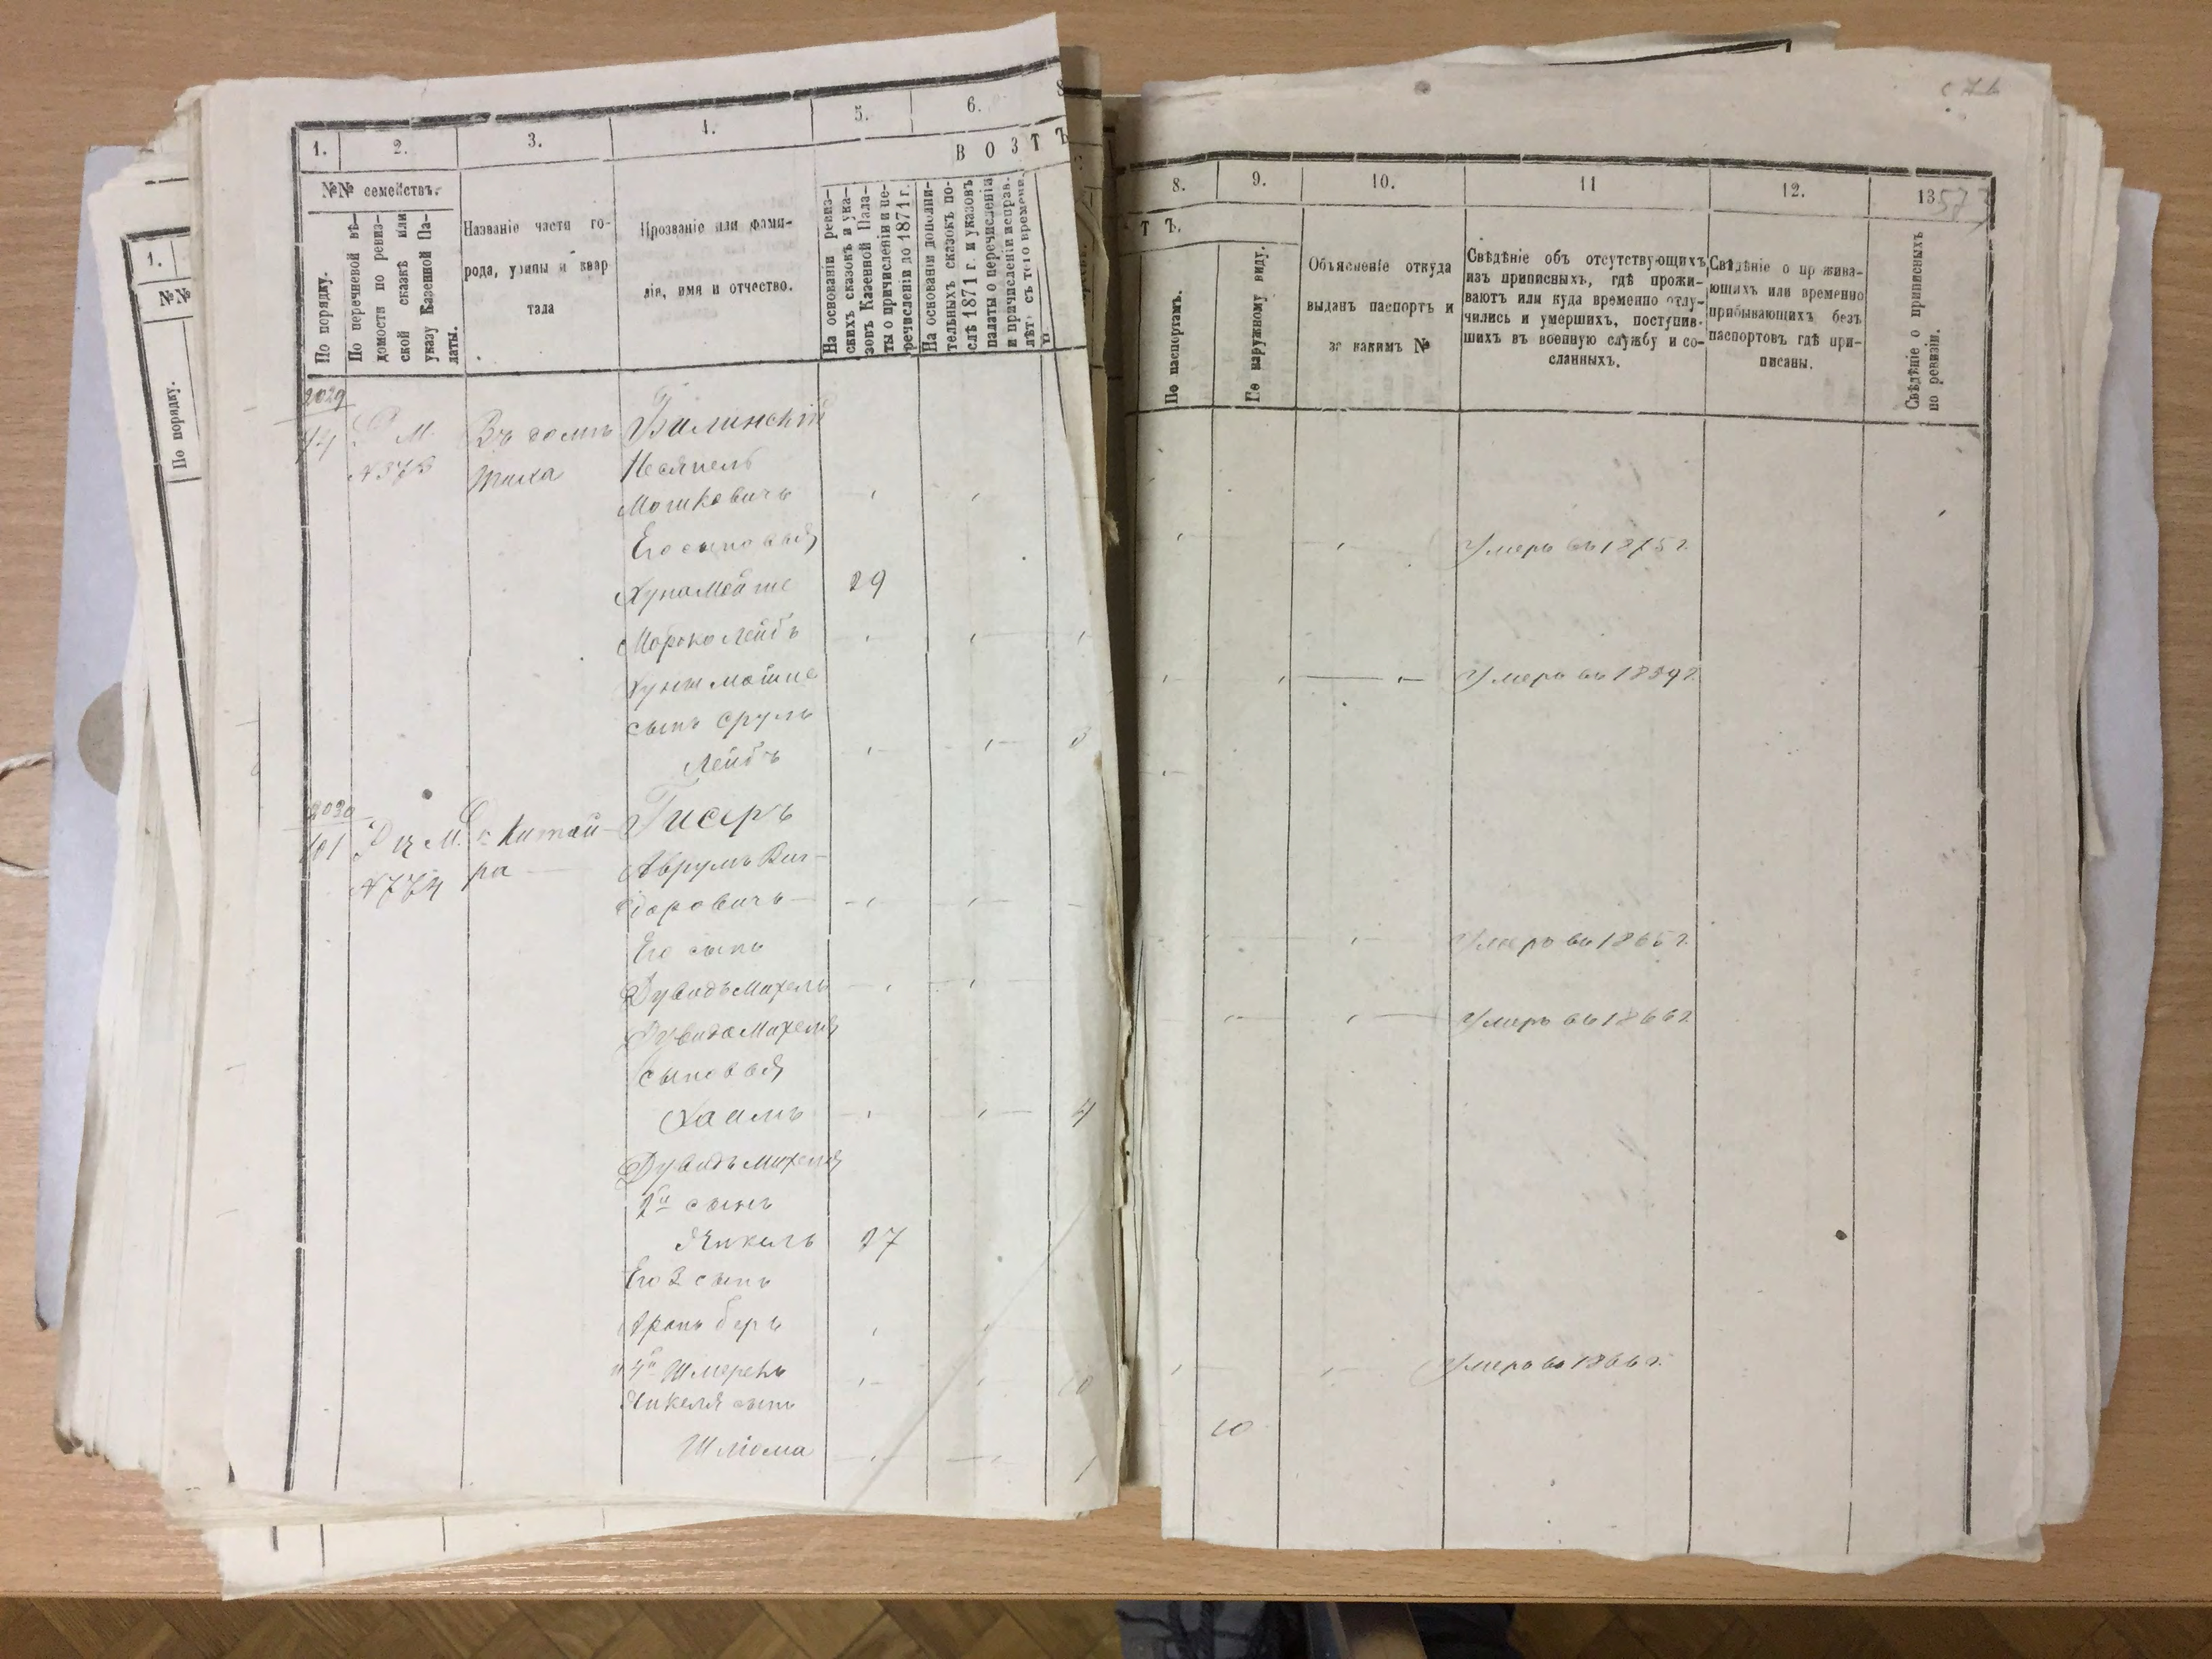 1.
2.
3.
4.
5.
6.
В О З
Т Ъ
№№ семействъ.
По порядку.
По перечневой вѣ-
домости по ревиз-
ской сказкѣ или
указу Казенной Па-
латы.
Названіе части го-
рода, улицы и квар
тала
Прозваніе или фами-
лія, имя и отчество.
На основаніи ревиз-
скихъ сказокъ и ука-
зовъ Казенной Пала-
ты о причисленіи и пе-
речисленіи до 1871 г.
На основаніи дополни-
тельныхъ сказокъ по-
слѣ 1871 г. и указовъ
палаты о перечисленіи
и причисленіи исправ.
лѣтъ съ того времени.
2029
Р М.
Въ домѣ
Билинскій
№ 373
Мошковичъ
Его сыновья
Хунамойше 29
Лейбъ
сынъ Сруль
Лейбъ 3
2030
101
Р ц М.
Китай-
Гисеръ
№ 774
ра
Аврумъ Виг-
доровичъ
Его сынъ
Дувидъ Михель
Дувида Михеля
сыновья
Хаимъ 4
Дувидъ Михеля
2й сынъ
Янкель 27
Его 3 сынъ
Аронъ Беръ
4й 10
Янкеля сынъ
Шліома 1
1.
№№
По порядку.
573
8.
9.
10.
11
12.
13
Т Ъ.
По паспортамъ.
По наружному виду.
Объясненіе откуда
выданъ паспортъ и
за какимъ №
Свѣдѣніе объ отсутствующихъ
изъ приписныхъ, гдѣ прожи-
ваютъ или куда временно отлу-
чились и умершихъ, поступив-
шихъ въ военную службу и со-
сланныхъ.
Свѣдѣніе о прожива-
ющихъ или временно
прибывающихъ безъ
паспортовъ гдѣ при-
писаны.
Свѣдѣніе о приписныхъ
по ревизіи.
Умеръ въ 1875 г.
Умеръ въ 1859 г.
Умеръ въ 1865 г.
Умеръ въ 1866 г.
Умеръ въ 1866 г.
10